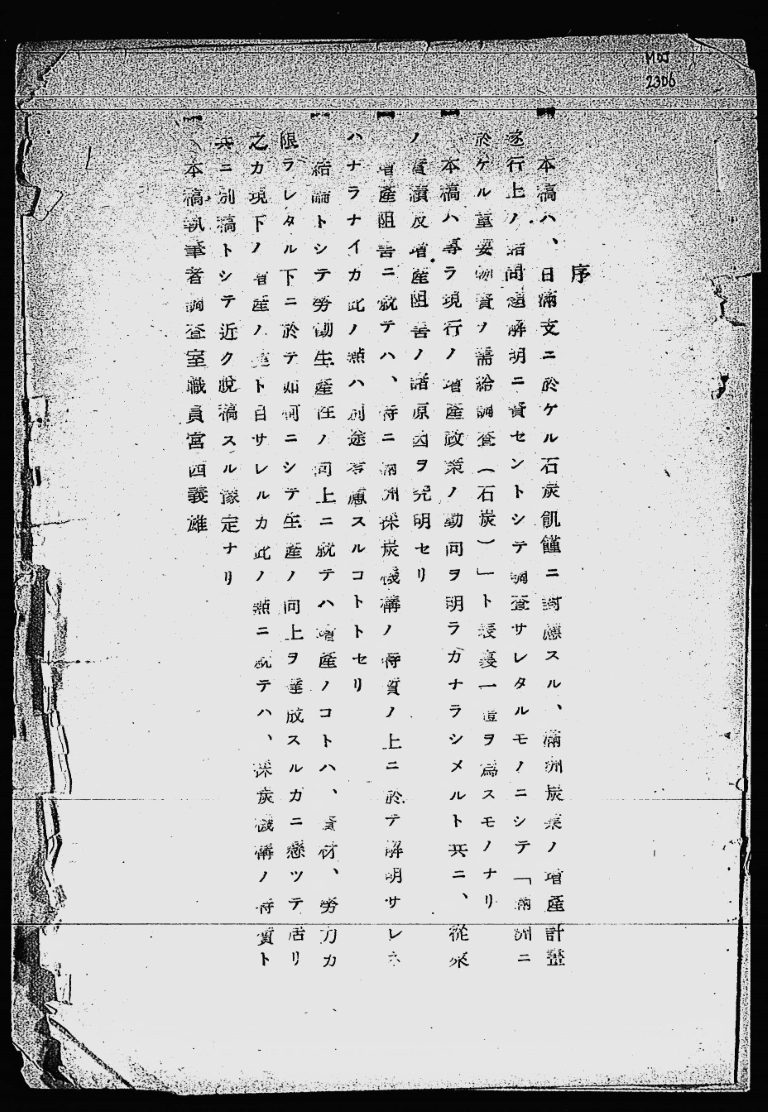 MOJ
2306
序
一 本稿ハ、日満支ニ於ケル石炭飢饉ニ対応スル、満洲炭業ノ増産計画
遂行上ノ諸問題解明ニ資セントシテ調査サレタルモノニシテ「満洲ニ
於ケル重要物資ノ需給調査(石炭)」ト表裏一体ヲ為スモノナリ
一 本稿ハ専ラ現行ノ増産政策ノ動向ヲ明ラカナラシメルト共ニ、従来
ノ実績及増産阻害ノ諸原因ヲ究明セリ
一 増産阻害ニ就テハ、特ニ満洲採炭機構ノ特質ノ上ニ於テ解明サレネ
ハナラナイカ此ノ点ハ別途考慮スルコトトセリ
一 結論トシテ労働生産性ノ向上ニ就テハ増産ノコトハ、資材、労力カ
限ラレタル下ニ於テ如何ニシテ生産ノ向上ヲ達成スルカニ懸ツテ居リ
之カ現下ノ増産ノ途ト目サレルカ此ノ点ニ就テハ、採炭機構ノ特質ト
共ニ別稿トシテ近ク脱稿スル予定ナリ
一 本稿執筆者調査室職員宮西義雄